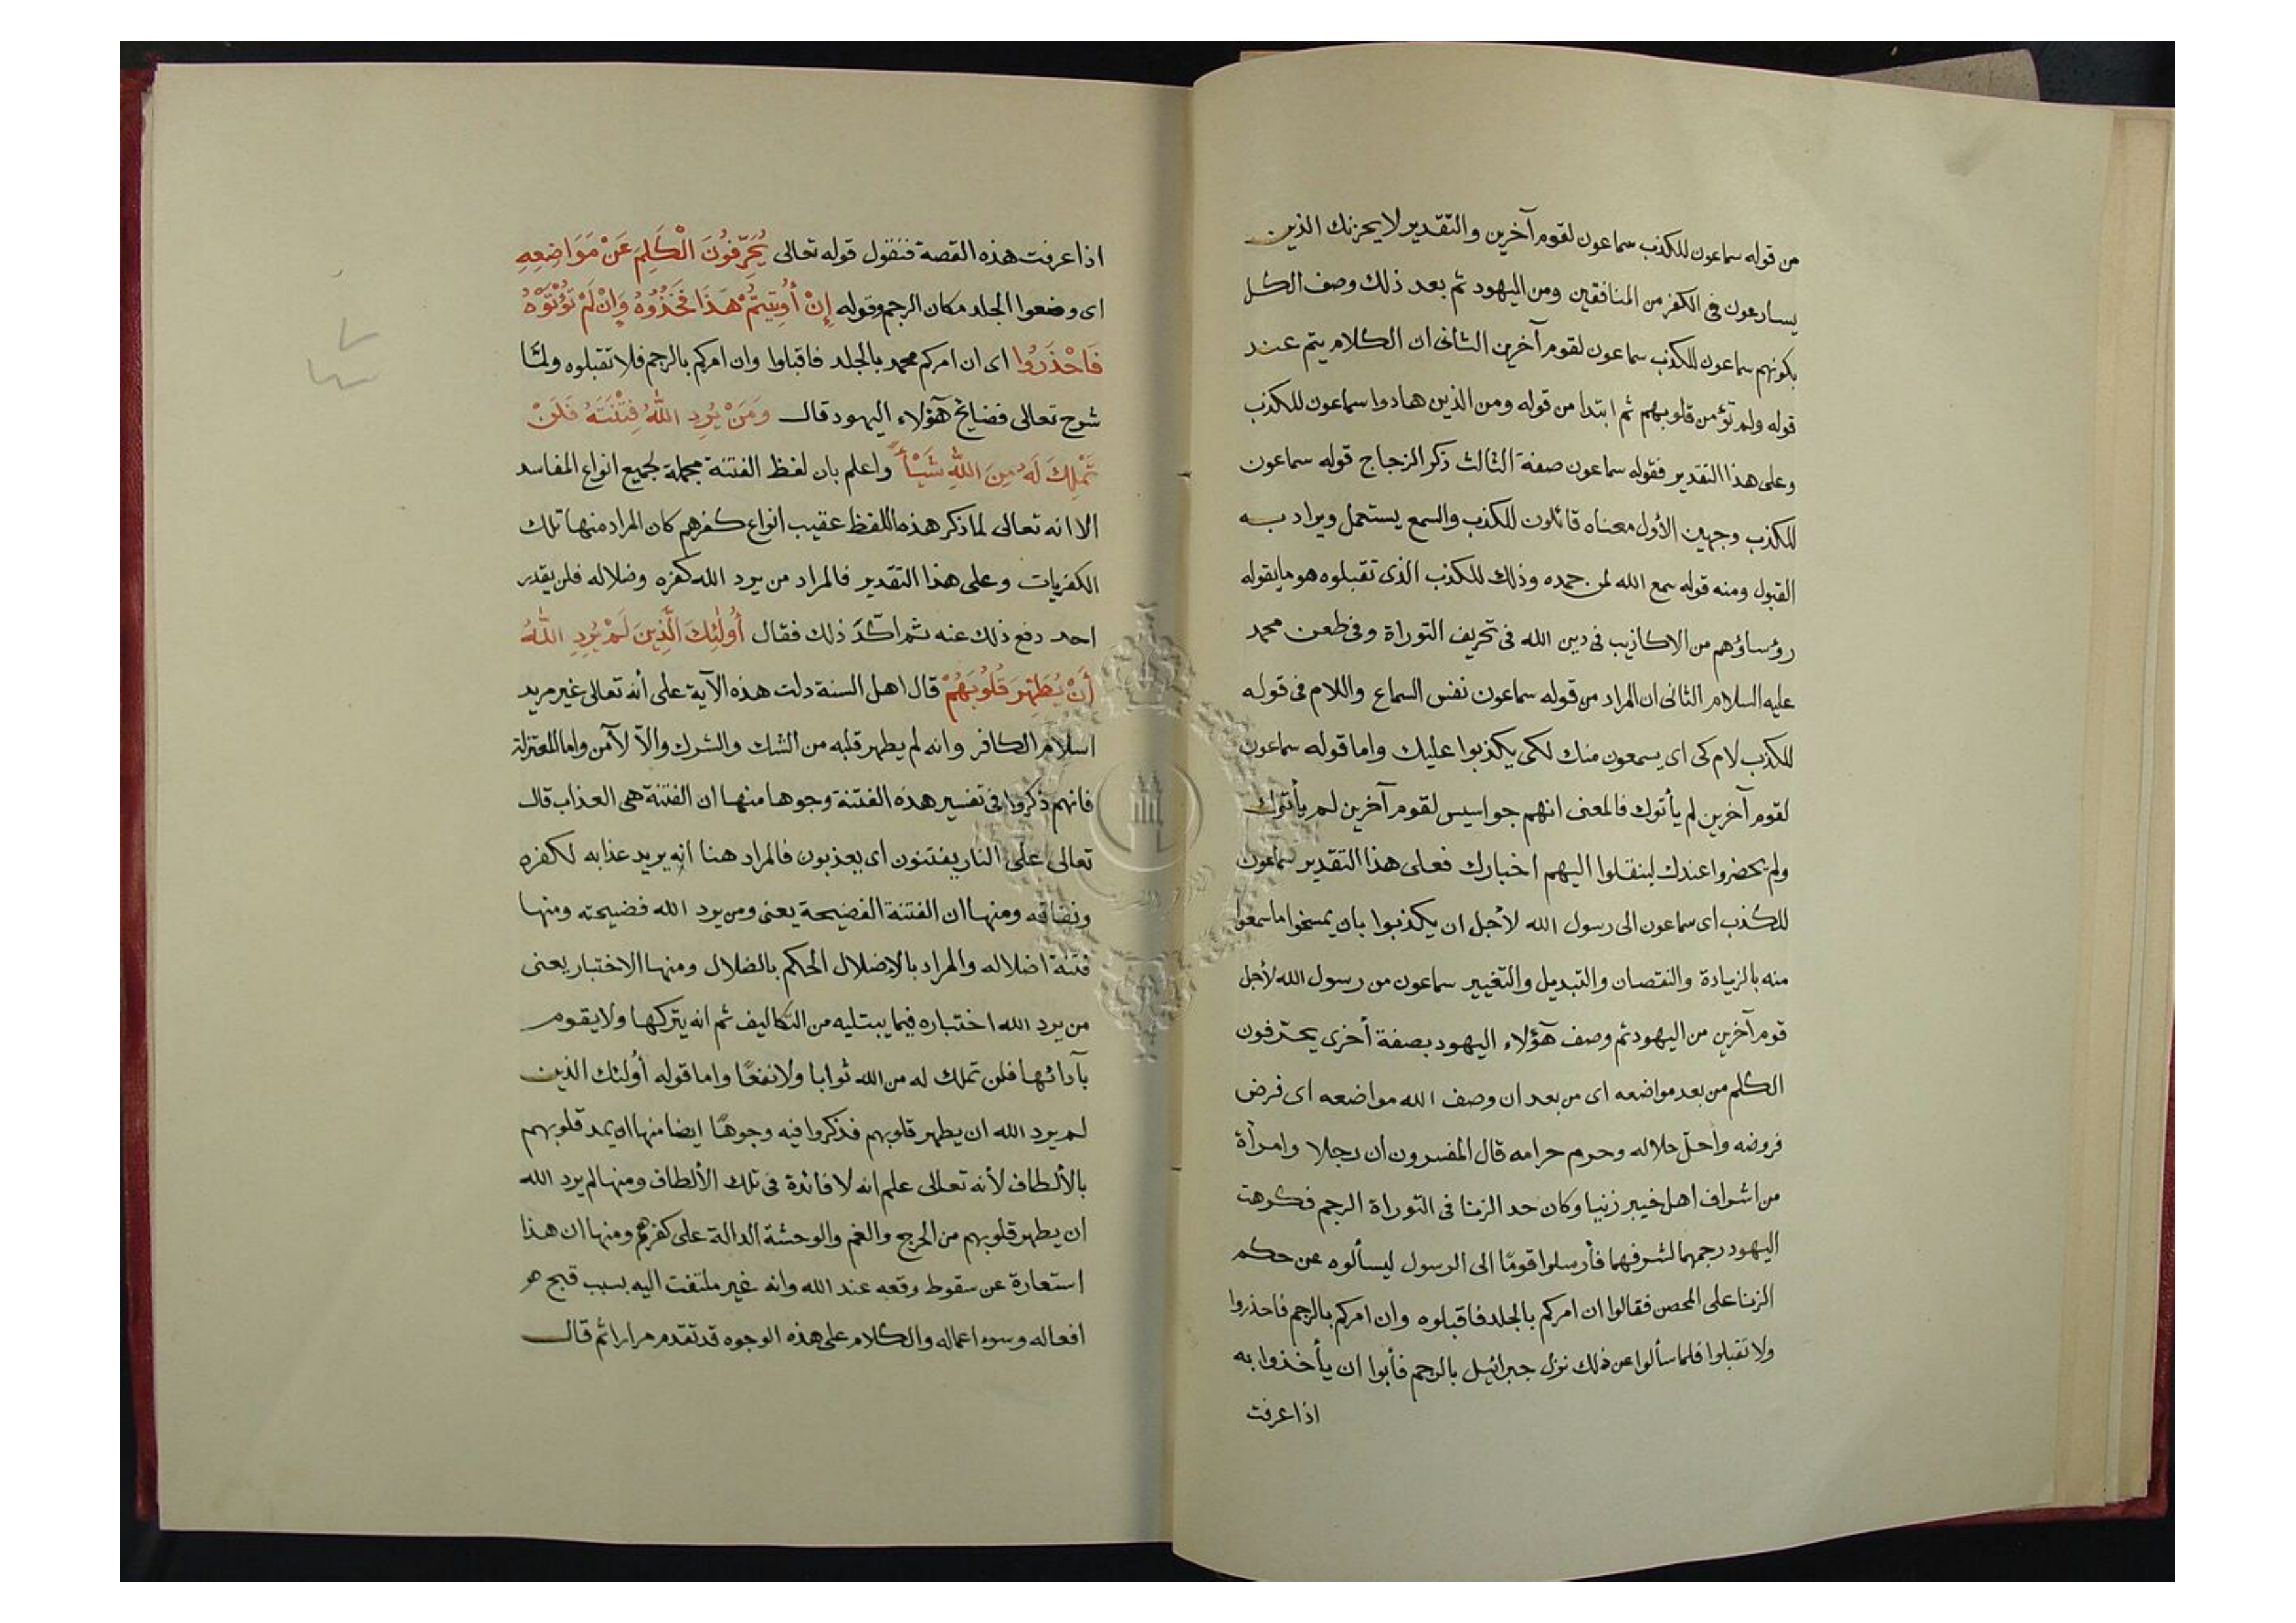 من قوله سماعون للكذب سماعون لقوم آخرين والتقدير لا يحزنك الذين
يسارعون فى الكفر من المنافقين ومن اليهود ثم بعد ذلك وصف الكل
بكونهم سماعون للكذب سماعون لقوم آخرين الثانى ان الكلام يتم عند
قوله ولم تؤمن قلوبهم ثم ابتدا من قوله ومن الذين هادوا سماعون للكذب
وعلى هذا التقدير فقوله سماعون صفة الثالث ذكر الزجاج قوله سماعون
للكذب وجهين الأول معناه قائلون للكذب والسمع يستعمل ويراد به
القبول ومنه قوله سمع الله لمن حمده وذلك للكذب الذى تقبلوه هو مايقوله
رؤساؤهم من الاكاذيب فى دين الله فى تحريف التوراة وفى طعن محمد
عليه السلام الثانى ان المراد من قوله سماعون نفس السماع واللام فى قوله
للكذب لام كى اى يسمعون منك لكى يكذبوا عليك واما قوله سماعون
لقوم آخرين لم يأتوك فالمعنى انهم جواسيس لقوم آخرين لم يأتوك
ولم يحضروا عندك لينقلوا اليهم اخبارك فعلى هذا التقدير سماعون
للكذب اى سماعون الى رسول الله لأجل ان يكذبوا بان يمسخوا ما سمعوا
منه بالزيادة والنقصان والتبديل والتغيير سماعون من رسول الله لأجل
قوم آخرين من اليهود ثم وصف هؤلاء اليهود بصفة أخرى يحرّفون
الكلم من بعد مواضعه اى من بعد ان وصف الله مواضعه اى فرض
فروضه وأحلّ حلاله وحرم حرامه قال المفسرون أن رجلا وامرأة
من اشراف اهل خيبر زنيا وكان حد الزنا فى التوراة الرجم فكرهت
اليهود رجمهما لشرفهما فأرسلوا قومًا الى الرسول ليسألوه عن حكم
الزنا على المحصن فقالوا ان امركم بالجلد فاقبلوه وان امركم بالرجم فاحذروا
ولا تقبلوا فلما سألوا عن ذلك نزل جبرائيل بالرجم فأبوا ان يأخذوا به
اذا عرفت
اذا عرفت هذه القصة فنقول قوله تعالى يُحَرِّفُونَ الْكَلِمَ عَنْ مَوَاضِعِهِ
اى وضعوا الجلد مكان الرجم وقوله إِنْ أُوتِيتُمْ هَذَا فَخُذُوُهُ وَإِنْ لَمْ تُؤْتَوْهُ
فَاحْذَرُوا اى ان امركم محمد بالجلد فاقبلوا وان امركم بالرجم فلا تقبلوه ولمّا
شرح تعالى فضايح هؤلاء اليهود قال وَمَنْ يُرِدِ اللهُ فِتْنَتَهُ فَلَنْ
تَمْلِكَ لَهُ مِنَ اللهِ شَيْأً واعلم بان لفظ الفتنة مجملة لجميع انواع المفاسد
الا انه تعالى لما ذكر هذه اللفظ عقيب انواع كفرهم كان المراد منها تلك
الكفريات وعلى هذا التقدير فالمراد من يرد الله كفره وضلاله فلن يقدر
احد دفع ذلك عنه ثم اكّدَ ذلك فقال أُولٰئِكَ الَّذِينَ لَمْ يُرِدِ اللهُ
أَنْ يُطَهِّرَ قُلُوبَهُمْ قال اهل السنة دلت هذه الآية على أنه تعالى غير مريد
اسلام الكافر وانه لم يطهر قلبه من الشك والشرك والاّ لآمن واما المعتزلة
فانهم ذكروا فى تفسير هذه الفتنة وجوها منها ان الفتنة هى العذاب قال
تعالى على النار يفتنون اى يعذبون فالمراد هنا انه يريد عذابه لكفره
ونفاقه ومنها ان الفتنة الفضيحة يعنى ومن يرد الله فضيحته ومنها
فتنة اضلاله والمراد بالإضلال الحكم بالضلال ومنها الاختبار يعنى
من يرد الله اختباره فيما يبتليه من التكاليف ثم انه يتركها ولا يقوم
بآدائها فلن تملك له من الله ثوابا ولا نفعًا واما قوله أولئك الذين
لم يرد الله ان يطهر قلوبهم فذكروا فيه وجوهًا ايضا منها ان يمد قلوبهم
بالألطاف لأنه تعالى علم انه لا فائدة فى تلك الألطاف ومنها لم يرد الله
ان يطهر قلوبهم من الحرج والغم والوحشة الدالة على كفرهم ومنها ان هذا
استعارة عن سقوط وقعه عند الله وانه غير ملتفت اليه بسبب قبح هو
افعاله وسوء اعماله والكلام على هذه الوجوه قد تقدم مرارا ثم قال